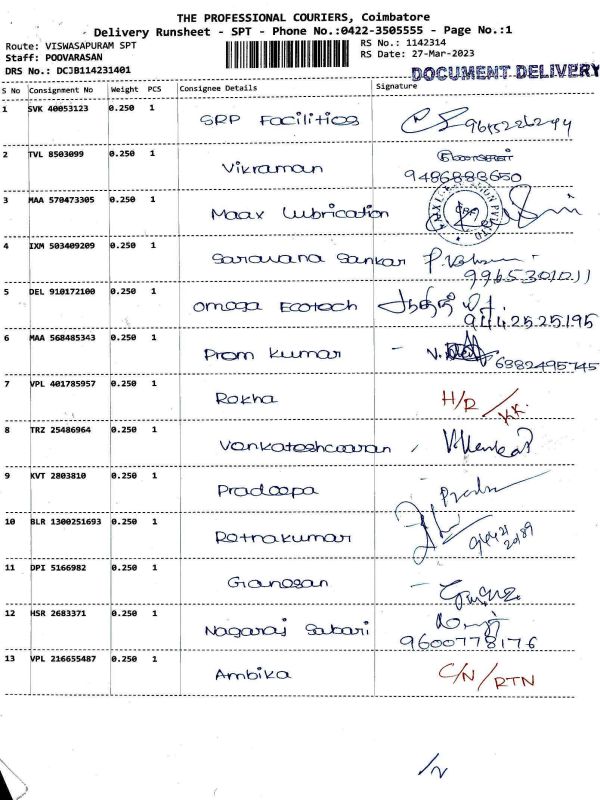 THE PROFESSIONAL COURIERS, Coimbatore
Delivery Runsheet - SPT - Phone No.:0422-3505555 - Page No.:1
Route: VISWASAPURAM SPT
RS No.: 1142314
Staff: POOVARASAN
RS Date: 27-Mar-2023
DRS No.: DCJB114231401
DOCUMENT DELIVERY
S No Consignment No Weight PCS Consignee Details Signature
1 SVK 40053123 0.250 1 SRP Facilities
2 TVL 8503099 0.250 1 Vikraman
9486883650
3 MAA 570473305 0.250 1 Maax Lubrication
4 IXM 503409209 0.250 1 Saravana Sankar
9965301011
5 DEL 910172100 0.250 1 Omega Ecotech
9442525195
6 MAA 568485343 0.250 1 Prem Kumar
6382495745
7 VPL 401785957 0.250 1 Rekha H/R / KK.
8 TRZ 25486964 0.250 1 Venkateshwaran V.Venkat
9 KVT 2803810 0.250 1 Pradeepa
10 BLR 1300251693 0.250 1 Retnakumar
11 DPI 5166982 0.250 1 Ganesan
12 HSR 2683371 0.250 1 Nagaraj Sabari
9600778176
13 VPL 216655487 0.250 1 Ambika C/N / RTN